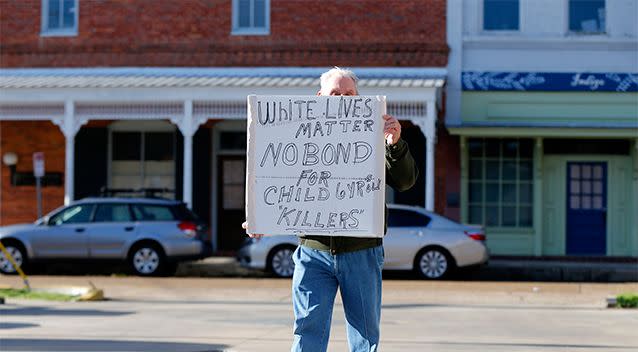 WHITE LIVES
MATTER
NO BOND
FOR
CHILD 6 YR old
"KILLERS"
Indigo